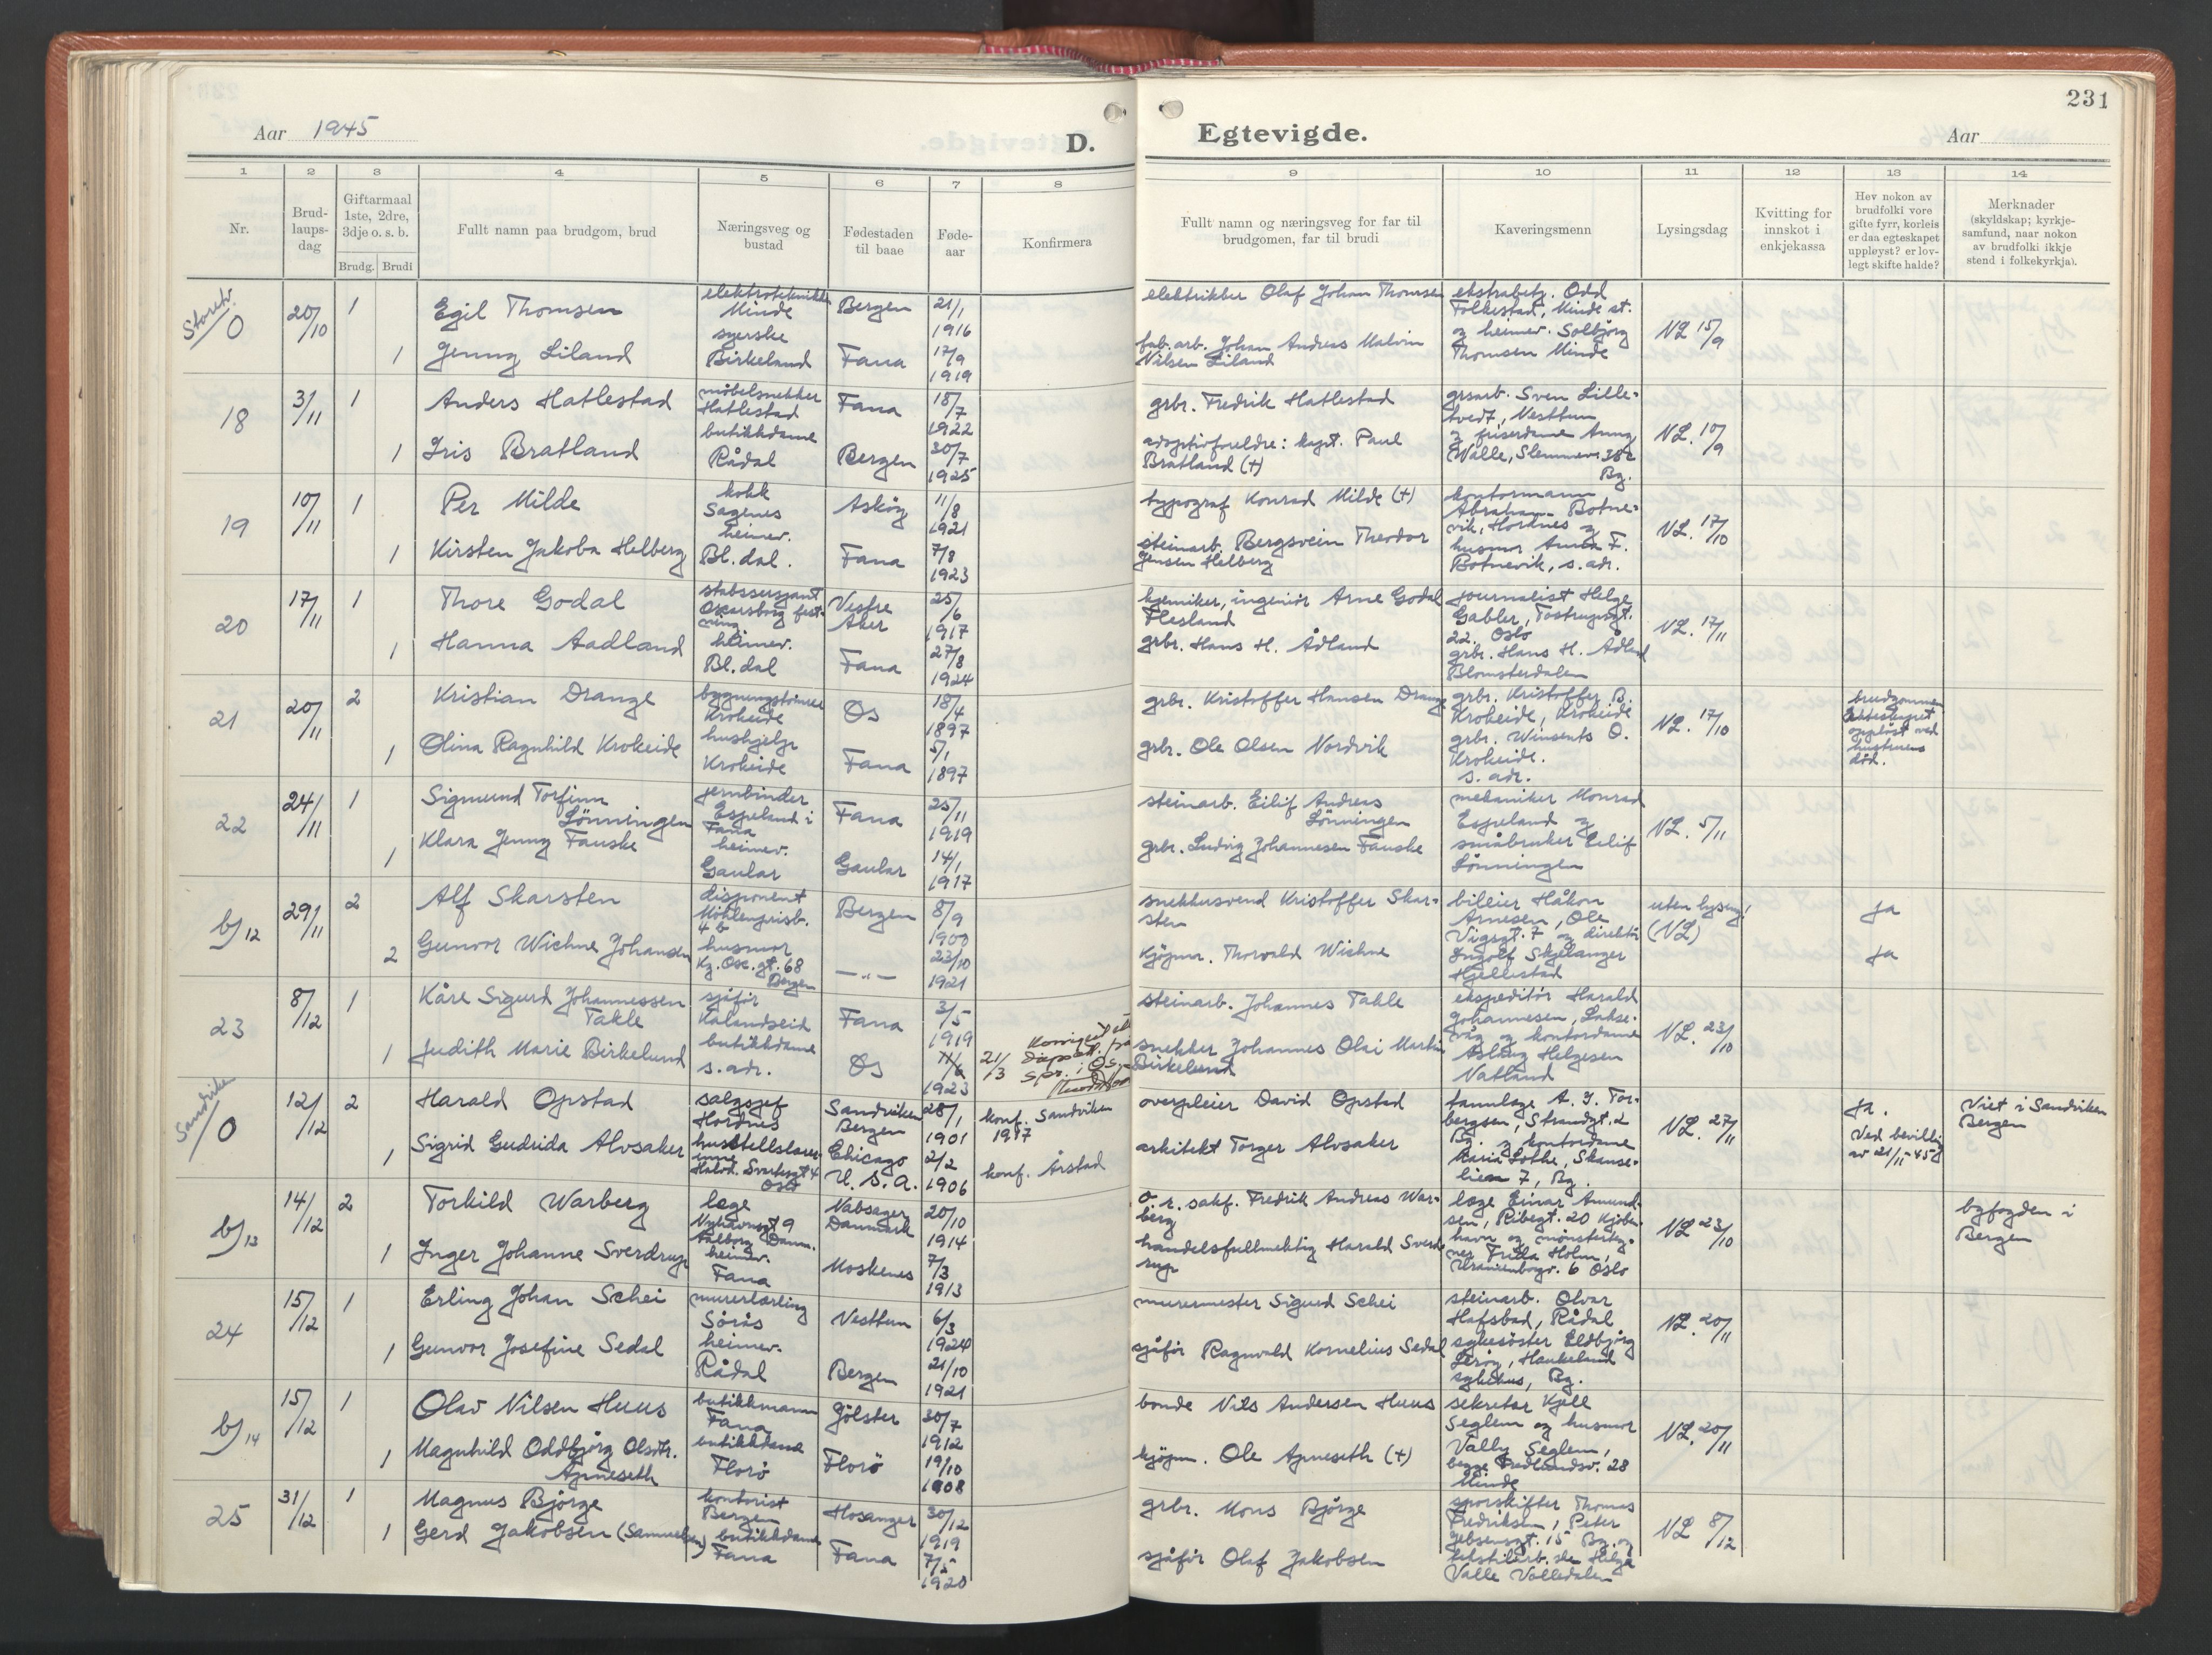 231
Aar 1945
D.
Egtevigde.
Aar
1 2 3 4 5 6 7 8 9 10 11 12 13 14
Nr.
Brud-
laups-
dag
Giftarmaal
1ste, 2dre,
3dje o. s. b.
Brudg. Brudi
Fullt namn paa brudgom, brud
Næringsveg og
bustad
Fødestaden
til baae
Føde-
aar
Konfirmera
Fullt namn og næringsveg for far til
brudgomen, far til brudi
Kaveringsmenn
Lysingsdag
Kvitting for
innskot i
enkjekassa
Hev nokon av
brudfolki vore
gifte fyrr, korleis
er daa egteskapet
uppløyst? er lov-
legt skifte halde?
Merknader
(skyldskap; kyrkje-
samfund, naar nokon
av brudfolki ikkje
stend i folkekyrkja).
Storetv.
0
20/10
1
Egil Thomsen
elektrotekniker
Minde
Bergen
21/1
1916
1
Jenny Liland
syerske
Birkeland
Fana
17/9
1919
elektriker Olaf Johan Thomsen
fab.arb. Johan Andreas Malvin
Nilsen Liland
ekstrabetj. Odd
Folkestad, Minde st.
og heimev. Solbjörg
Thomsen Minde
NL 15/9
18
3/11
1
Anders Hatlestad
möbelsnekker
Hatlestad
Fana
18/7
1922
1
Iris Bratland
butikkdame
Rådal
Bergen
30/7
1925
grbr. Fredrik Hatlestad
adoptivforeldre: kapt. Paul
Bratland (+)
grsarb. Sven Lille-
tvedt, Nesttun
og friserdame Anny
Walle, Slemmev. 38c
Bg.
NL. 10/9
19
10/11
1
Per Milde
kokk
Sagenes
Asköy
11/8
1921
1
Kirsten Jakoba Helberg
heimev.
Bl. dal.
Fana
7/8
1923
typograf Konrad Milde (+)
steinarb. Bergsvein Theodor
Jensen Helberg
kontormann
Abraham Botne-
vik, Hordnes og
husmor Anna F.
Botnevik, s. adr.
NL. 17/10
20
17/11
1
Thore Godal
stabssersjant
Oscarsborg fest-
ning
Vestre
Aker
25/6
1917
1
Hanna Aadland
heimev.
Bl. dal
Fana
27/8
1924
kjemiker, ingeniör Arne Godal
Flesland
grbr. Hans H. Ådland
journalist Helge
Gabler, Tostrupsgt.
22. Oslo
grbr. Hans H. Ådland
Blomsterdalen
NL. 17/11
21
20/11
2
Kristian Drange
Krokeide
Os
18/4
1897
1
Olina Ragnhild Krokeide
hushjelp
Krokeide
Fana
5/1
1897
grbr. Kristoffer Hansen Drange
grbr. Ole Olsen Nordvik
grbr. Kristoffer B.
Krokeide, Krokeide
grbr. Winsents O.
Krokeide.
s. adr.
NL. 17/10
brudgommen
ekteskapet
opplöst ved
hustruens
död.
22
24/11
1
Sigmund Torfinn
Lönningen
jernbinder
Espeland i
Fana
Fana
25/11
1919
1
Klara Jenny Fauske
heimev.
Gaular
Gaular
14/1
1917
steinarb. Eilif Andreas
Lönningen
grbr. Ludvig Johannesen Fauske
mekaniker Monrad
Espeland og
småbruker Eilif
Lönningen
NL. 5/11
b/12
29/11
2
Alf Skarsten
disponent
Möhlenprisb.
4 b
Bergen
8/9
1900
2
Gunvor Wichne Johansen
husmor
Kg. Osc. gt. 68
Bergen
— „ —
23/10
1921
snekkersvend Kristoffer Skar-
sten
kjöpm. Thorvald Wichne
bileier Håkon
Arnesen, Ole
Vigsgt. 7 og direktör
Ingolf Skjelanger
Hjellestad
uten lysing!
(NL)
ja
ja
23
8/12
1
Kåre Sigurd Johannessen
Takle
sjåför
Kalandseid
Fana
3/5
1919
1
Judith Marie Birkelund
butikkdame
s. adr.
Os
1923
21/3
steinarb. Johannes Takle
snekker Johannes Olai Martin
Birkelund
ekspeditör Harald
Johannesen, Lakse-
våg og kontordame
Aslaug Helgesen
Natland
NL. 23/10
Sandviken
0
12/12
2
Harald Opstad
salgssjef
Hordnes
Sandviken
Bergen
28/1
1901
konf. Sandviken
1917
1
Sigrid Gudrida Alvsaker
husstellslærer-
inne
Halvd. Svartesgt 4
Oslo
Chicago
U. S. A.
2/2
1906
konf. Årstad
overpleier David Opstad
arkitekt Torger Alvsaker
tannlege A. J. Tor-
bergsen, Strandgt. 2
Bg. og kontordame
Maria Lothe, Skanse-
lien 7, Bg.
NL. 27/11
ja.
Ved bevilling
av 21/11-45
Viet i Sandviken
Bergen
b/13
14/12
2
Torkild Warberg
læge
Nyhavnsgt 9
Aalborg Danm.
Danmark
20/10
1914
1
Inger Johanne Sverdrup
heimev.
Fana
Moskenes
7/3
1913
o. r. sakf. Fredrik Andreas War-
berg
handelsfullmektig Harald Sverd-
rup
læge Einar Amund-
sen, Ribegt. 20 Kjöben-
havn og mönsterteg-
ner Frida Holm,
Uranienborgv. 6 Oslo
NL 23/10
byfogden i
Bergen
24
15/12
1
Erling Johan Schei
murerlærling
Sörås
Nesttun
6/3
1924
1
Gunvor Josefine Sedal
heimev.
Rådal
Bergen
21/10
1921
murermester Sigurd Schei
sjåför Ragnvald Kornelius Sedal
steinarb. Olvar
Hafsbad, Rådal
sykesöster Eldbjörg
Leröy, Haukeland
sykehus, Bg.
NL. 20/11
b/14
15/12
1
Olav Nilsen Huus
butikkmann
Fana
Jölster
30/7
1912
1
Magnhild Oddbjörg Olsdtr.
Apneseth
butikkdame
Florö
Florö
19/10
1908
bonde Nils Andersen Huus
kjöpm. Ole Apneseth (+)
sekretær Kjell
Seglem og husmor
Vally Seglem,
begge Fredlundsv. 28
Minde
NL. 20/11
25
31/12
1
Magnus Björge
kontorist
Bergen
Hosanger
30/12
1919
1
Gerd Jakobsen (Samuelsen)
butikkdame
Fana
Fana
7/5
1920
grbr. Mons Björge
sjåför Olaf Jakobsen
sporskifter Thomas
Fredriksen, Peter
Jebsensgt. 15 Bg. og
tekstilarb.ske Helga
Valle Valledalen
NL 8/12